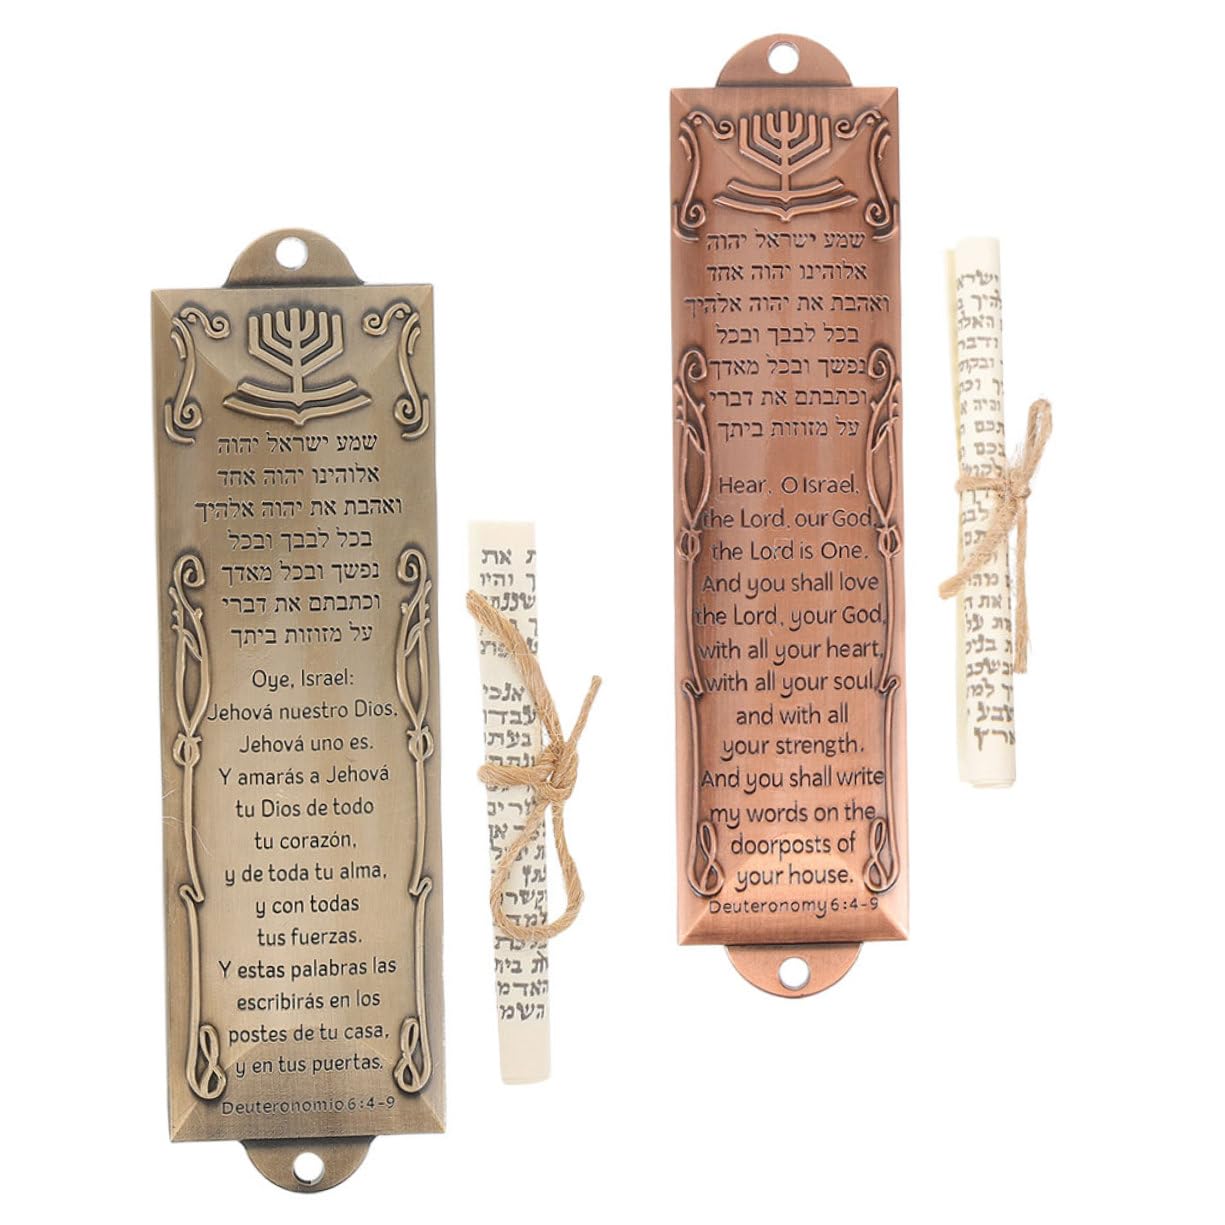 שמע ישראל יהוה
אלוהינו יהוה אחד
ואהבת את יהוה אלהיך
בכל לבבך ובכל
נפשך ובכל מאדך
וכתבתם את דברי
על מזוזות ביתך
Oye, Israel:
Jehová nuestro Dios,
Jehová uno es.
Y amarás a Jehová
tu Dios de todo
tu corazón,
y de toda tu alma,
y con todas
tus fuerzas.
Y estas palabras las
escribirás en los
postes de tu casa,
y en tus puertas.
Deuteronomio 6:4-9
את
והיו
אנכי
בית
האדמ
השמ
שמע ישראל יהוה
אלוהינו יהוה אחד
ואהבת את יהוה אלהיך
בכל לבבך ובכל
נפשך ובכל מאדך
וכתבתם את דברי
על מזוזות ביתך
Hear, O Israel,
the Lord, our God,
the Lord is One.
And you shall love
the Lord, your God,
with all your heart,
with all your soul,
and with all
your strength.
And you shall write
my words on the
doorposts of
your house.
Deuteronomy 6:4-9
ישרא
האלה
ודבר